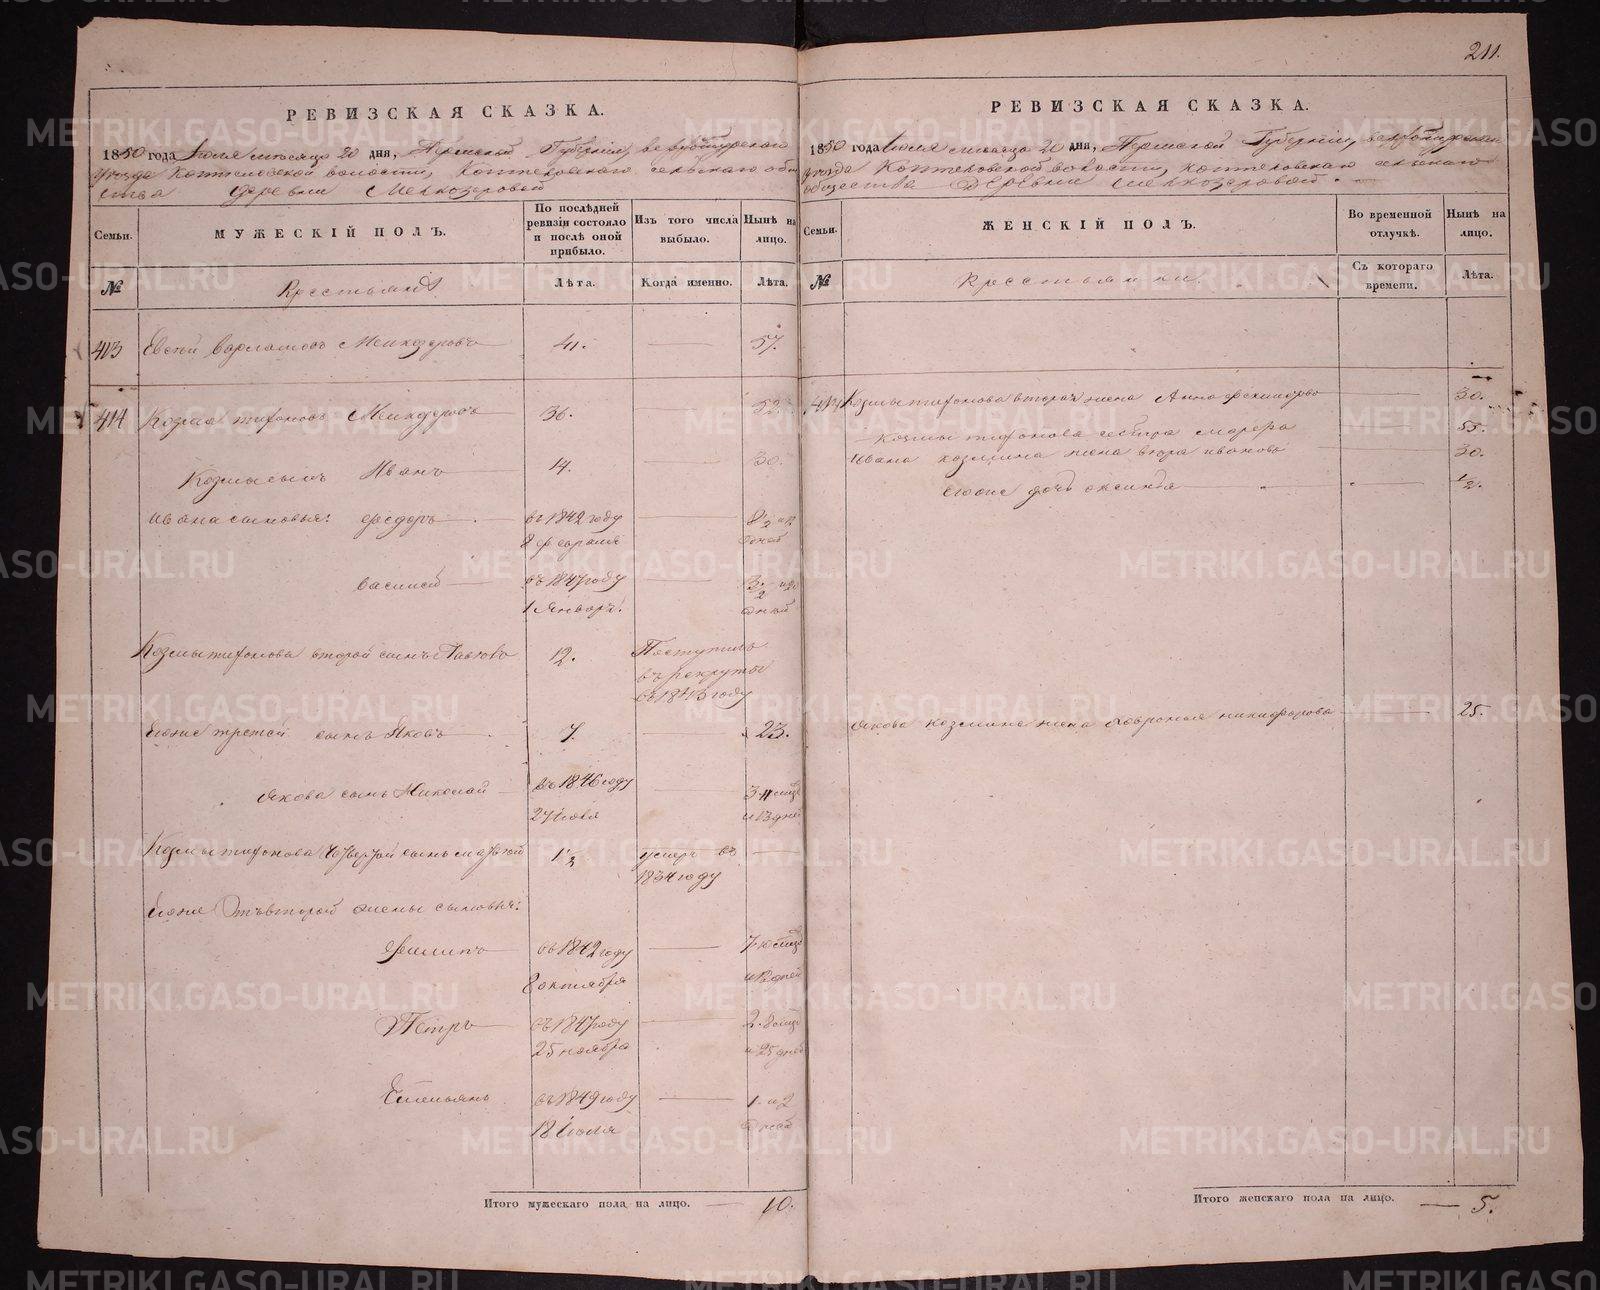 211.
РЕВИЗСКАЯ СКАЗКА.
1850 года Июля месяца 20 дня, Пермской Губернии, Верхотурскаго
уезда Коптеловской волости, Коптеловскаго сельскаго обще
ства деревни Мелкозеровой
Семьи.
МУЖЕСКІЙ ПОЛЪ.
По послѣдней ревизіи состояло и послѣ оной прибыло.
Изъ того числа выбыло.
Нынѣ на лицо.
№
Крестьяне
Лѣта.
Когда именно.
Лѣта.
413 Евсей Варламовъ Мелкозеровъ 41. 57.
414 Козма Тифоновъ Мелкозеровъ 36. 52.
Козмы сынъ Иванъ 14. 30.
Ивана сыновья: Федоръ въ 1842 году 8 1/2
8 февраля дней
Василей въ 1847 году 3 1/2
1 Январ. дней
Козмы Тифонова второй сынъ 12. Поступилъ
въ рекруты
въ 1843 году
Егоже третей сынъ Яковъ 7. 23.
Якова сынъ Николай въ 1846 году 3 11 мцъ
27 Июля и 13 дней
Козмы Тифонова четвертой сынъ 1 1/2 умеръ въ
1834 году
Егоже отъ второй жены сыновья:
Филипъ въ 1842 году 7
8 октября и 12 дней
Петръ въ 1847 году 2. 8 мцъ
25 ноября и 25 дней
Емельянъ въ 1849 году 1. и 2
18 Июля дней
Итого мужескаго пола на лицо. 10.
РЕВИЗСКАЯ СКАЗКА.
1850 года Июля месяца 20 дня, Пермской Губернии, Верхотурскаго
уезда Коптеловской волости, Коптеловскаго сельскаго
общества Деревни Мелкозеровой.
Семьи.
ЖЕНСКІЙ ПОЛЪ.
Во временной отлучкѣ.
Нынѣ на лицо.
№
Крестьянки.
Съ котораго времени.
Лѣта.
414 Козмы Тифонова вторая жена Анна 30.
Козмы Тифонова сестра 55.
Ивана Козмина жена Иванова 30.
Егоже дочь Аксинья 1/2.
Якова Козмина жена Никифорова 25.
Итого женскаго пола на лицо. 5.
METRIKI.GASO-URAL.RU